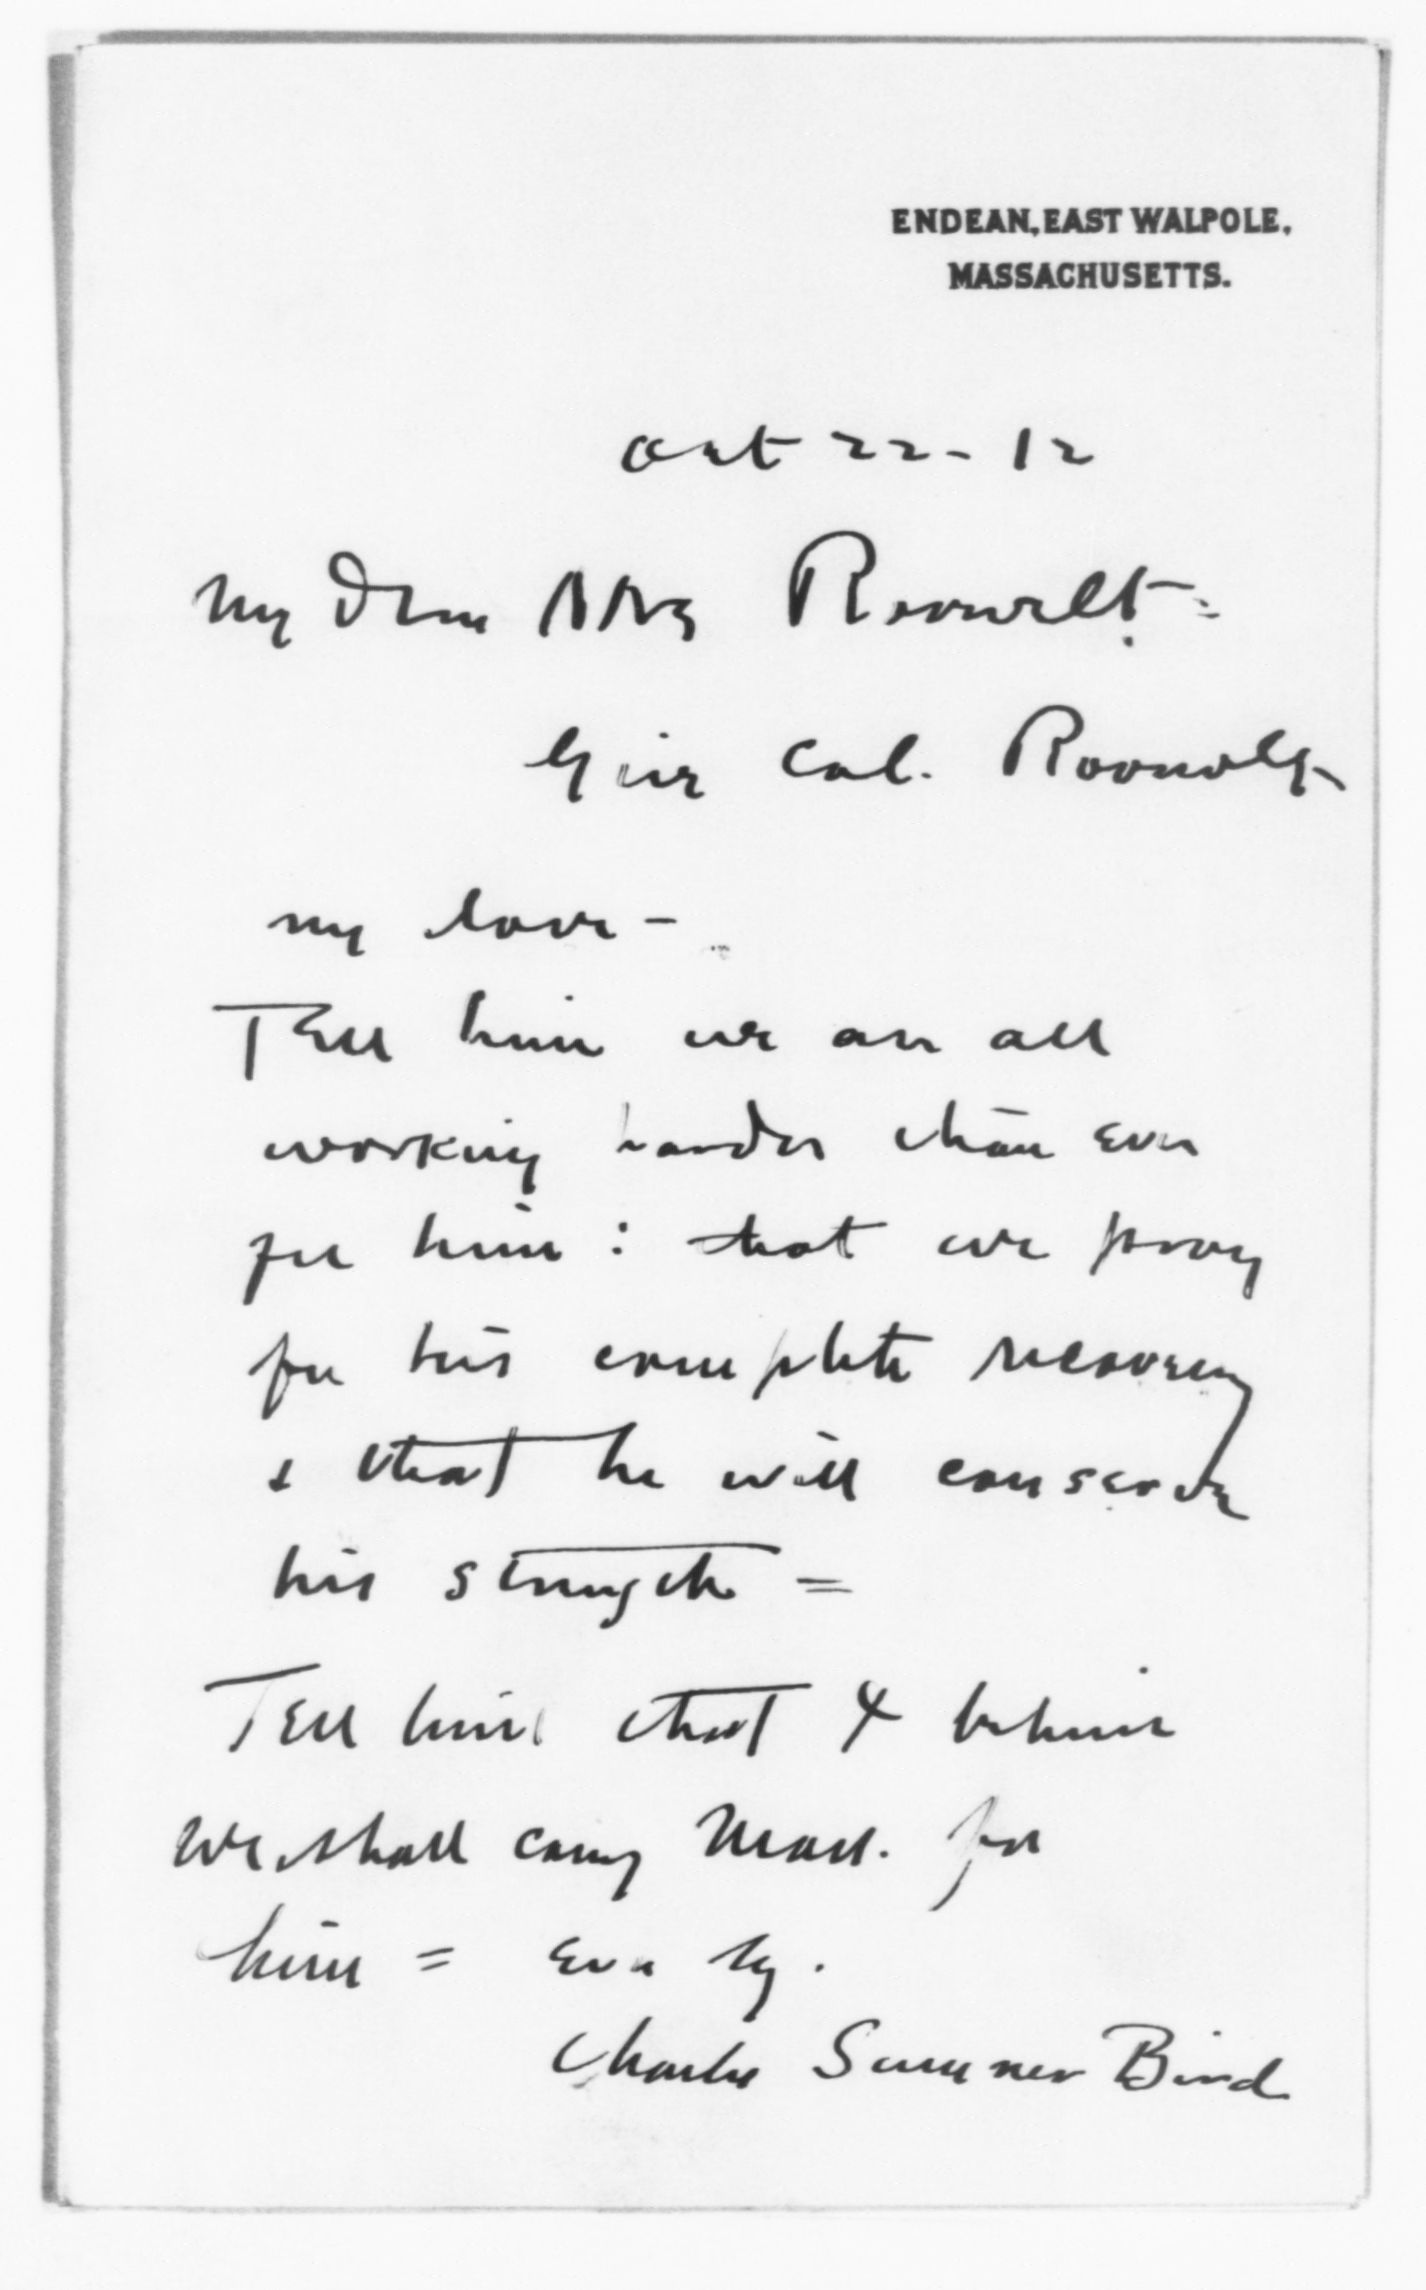 ENDEAN, EAST WALPOLE.
MASSACHUSETTS.
Oct 22-12
My Dear Mrs Roosevelt:
Give Col. Roosevelt
my love -
Tell him we are all
working harder than ever
for him: that we pray
for his complete recovery
& that he will conserve
his strength =
Tell him that I believe
we shall carry Mass. for
him = Ever
Charles Sumner Bird